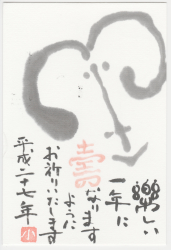 樂しい
一年に
なります
ように
お祈りいたします
平成二十七年